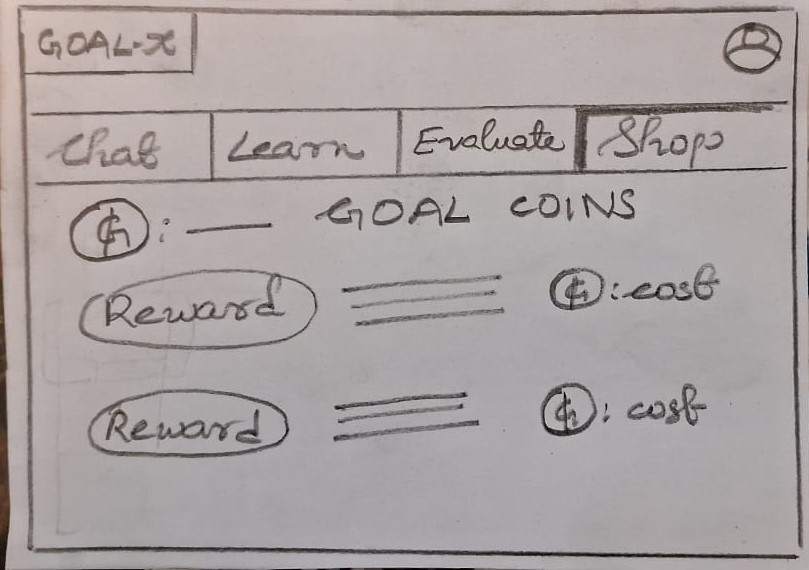 GOAL-X
Chat Learn Evaluate Shop
G : — GOAL COINS
Reward G : cost
Reward G : cost